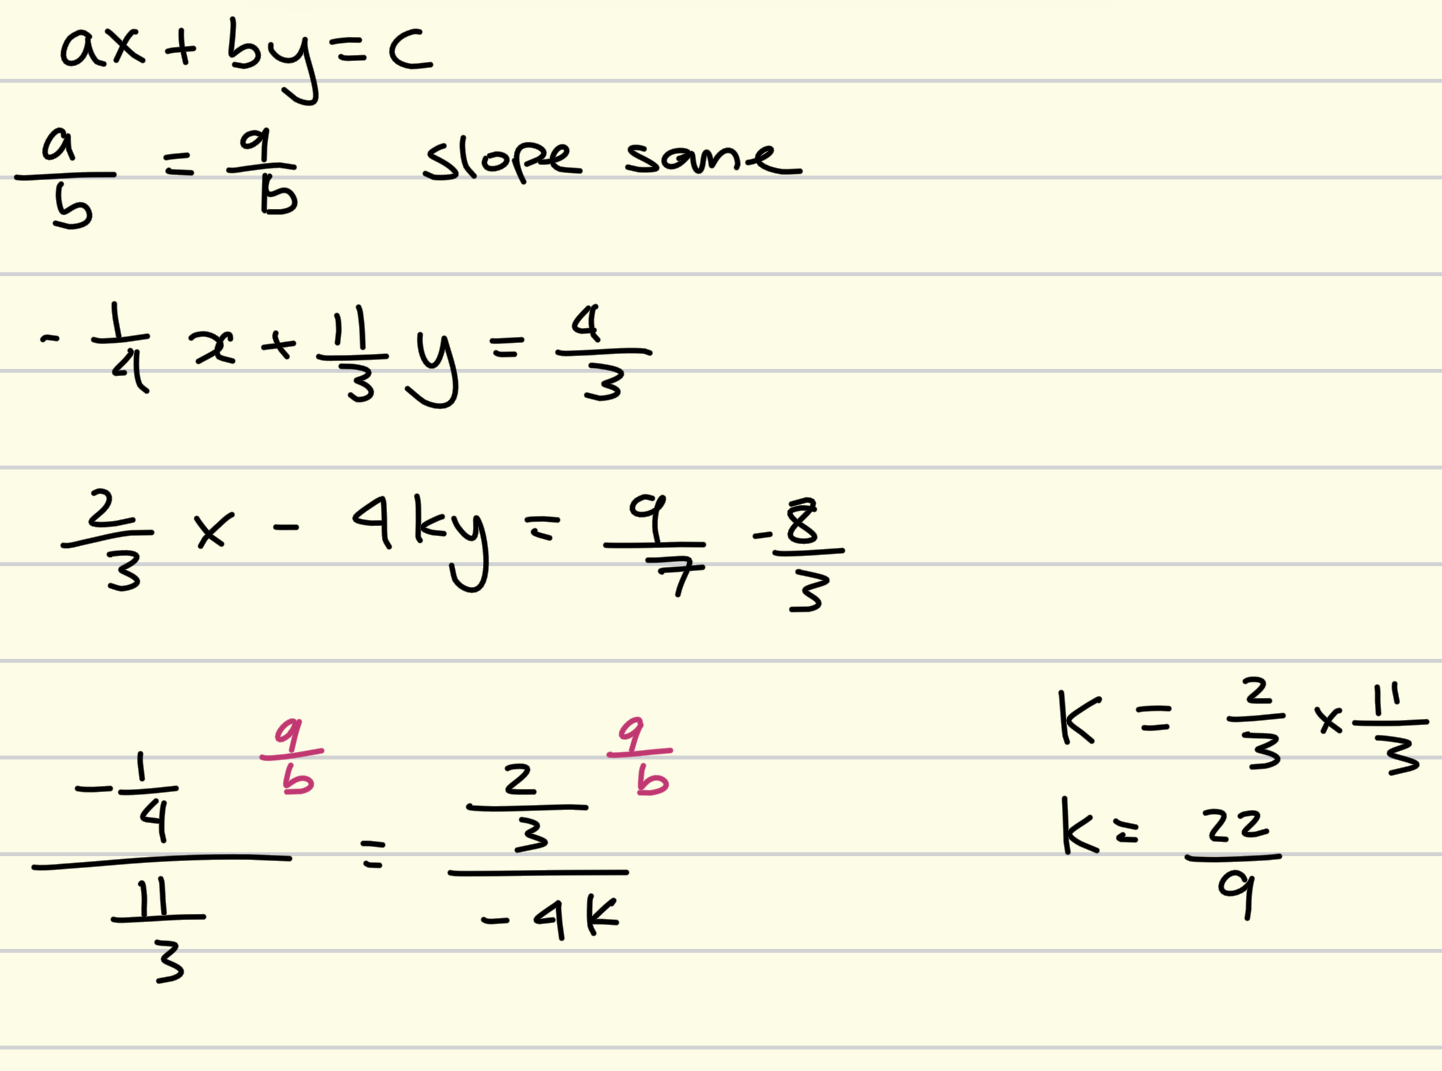 ax + by = c
a/b = a/b slope same
- 1/4 x + 11/3 y = 4/3
2/3 x - 4ky = 9/7 - 8/3
(-1/4)/(11/3) a/b = (2/3)/(-4k) a/b
k = 2/3 x 11/3
k = 22/9